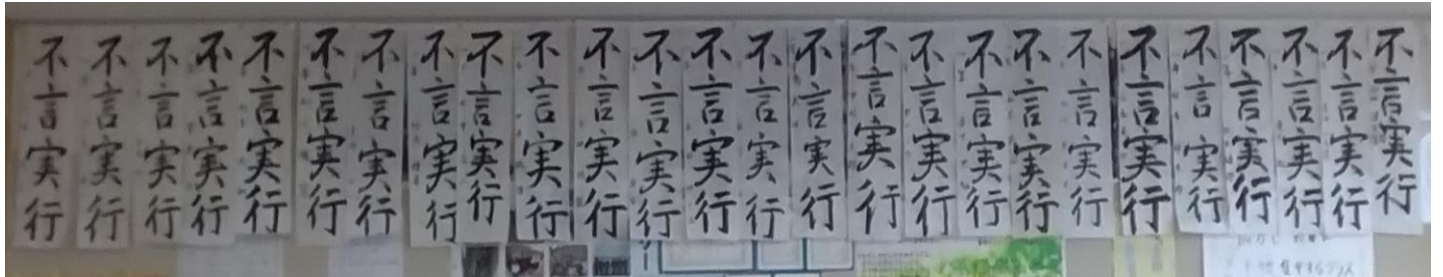 不言実行
不言実行
不言実行
不言実行
不言実行
不言実行
不言実行
不言実行
不言実行
不言実行
不言実行
不言実行
不言実行
不言実行
不言実行
不言実行
不言実行
不言実行
不言実行
不言実行
不言実行
不言実行
不言実行
不言実行
不言実行
不言実行